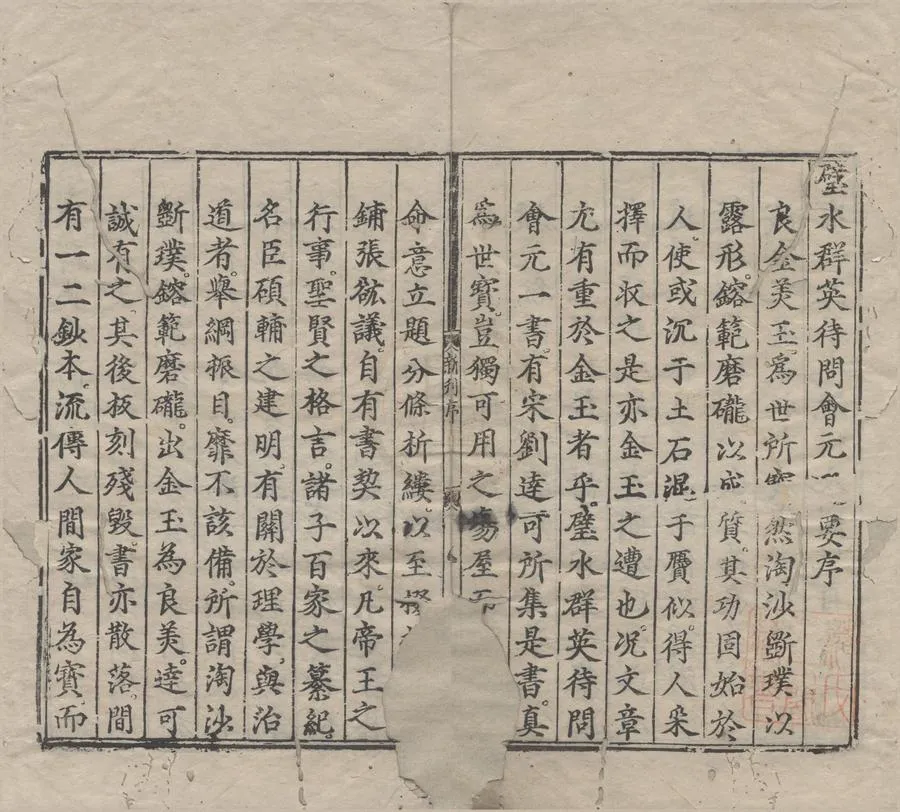 璧水群英待問會元選要序
良金美玉爲世所寳然淘沙斵璞以
露形鎔範磨礲以成質其功固始於
人使或沉于土石混于贋似得人采
擇而收之是亦金玉之遭也况文章
尤有重於金玉者乎璧水群英待問
會元一書有宋劉達可所集是書真
爲世寳豈獨可用之場屋
命意立題分條析縷以至
鋪張紘議自有書契以來凡帝王之
行事聖賢之格言諸子百家之纂紀
名臣碩輔之建明有關於理學與治
道者舉綱振目靡不該備所謂淘沙
斵璞鎔範磨礲出金玉為良美達可
誠有之其後板刻殘毀書亦散落間
有一二鈔本流傳人間家自為寳而